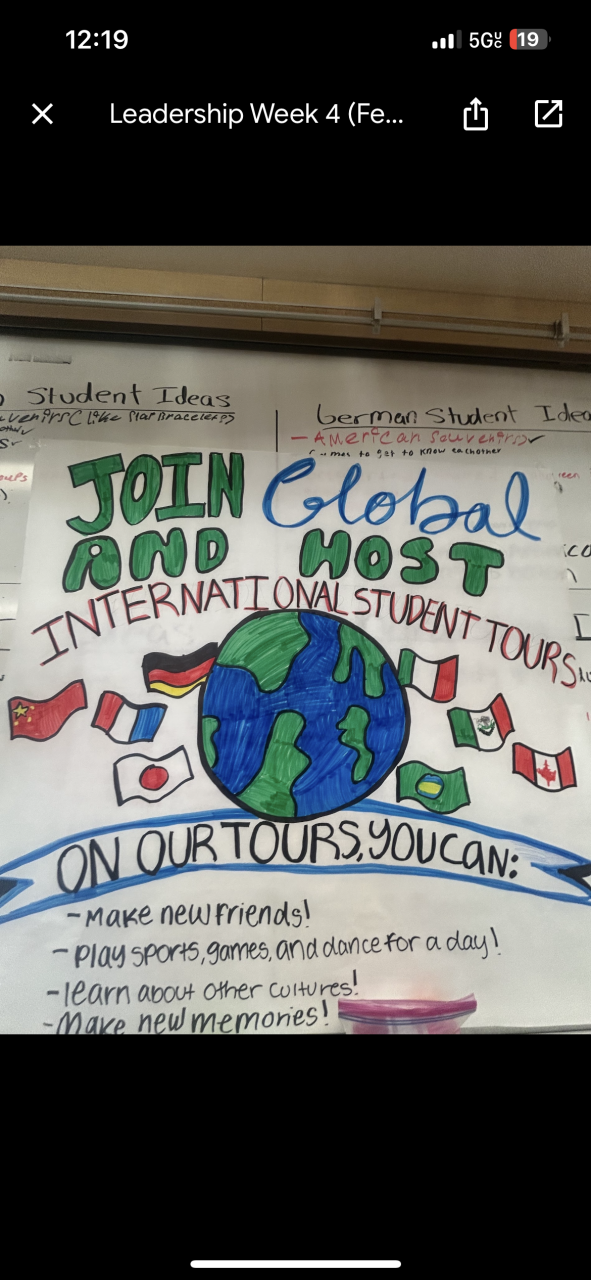 12:19
5G 19
Leadership Week 4 (Fe...
Student Ideas
German Student Idea
- American Souvenirs
to get to know eachother
JOIN Global
AND HOST
INTERNATIONAL STUDENT TOURS
ON OUR TOURS, YOU CAN:
- Make new friends!
- play sports, games, and dance for a day!
- learn about other cultures!
- Make new memories!